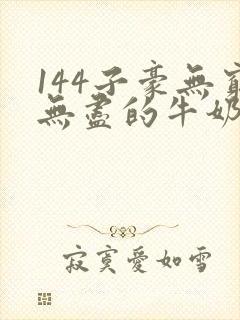 144子豪無窮
無盡的牛奶
寂寞愛如雪